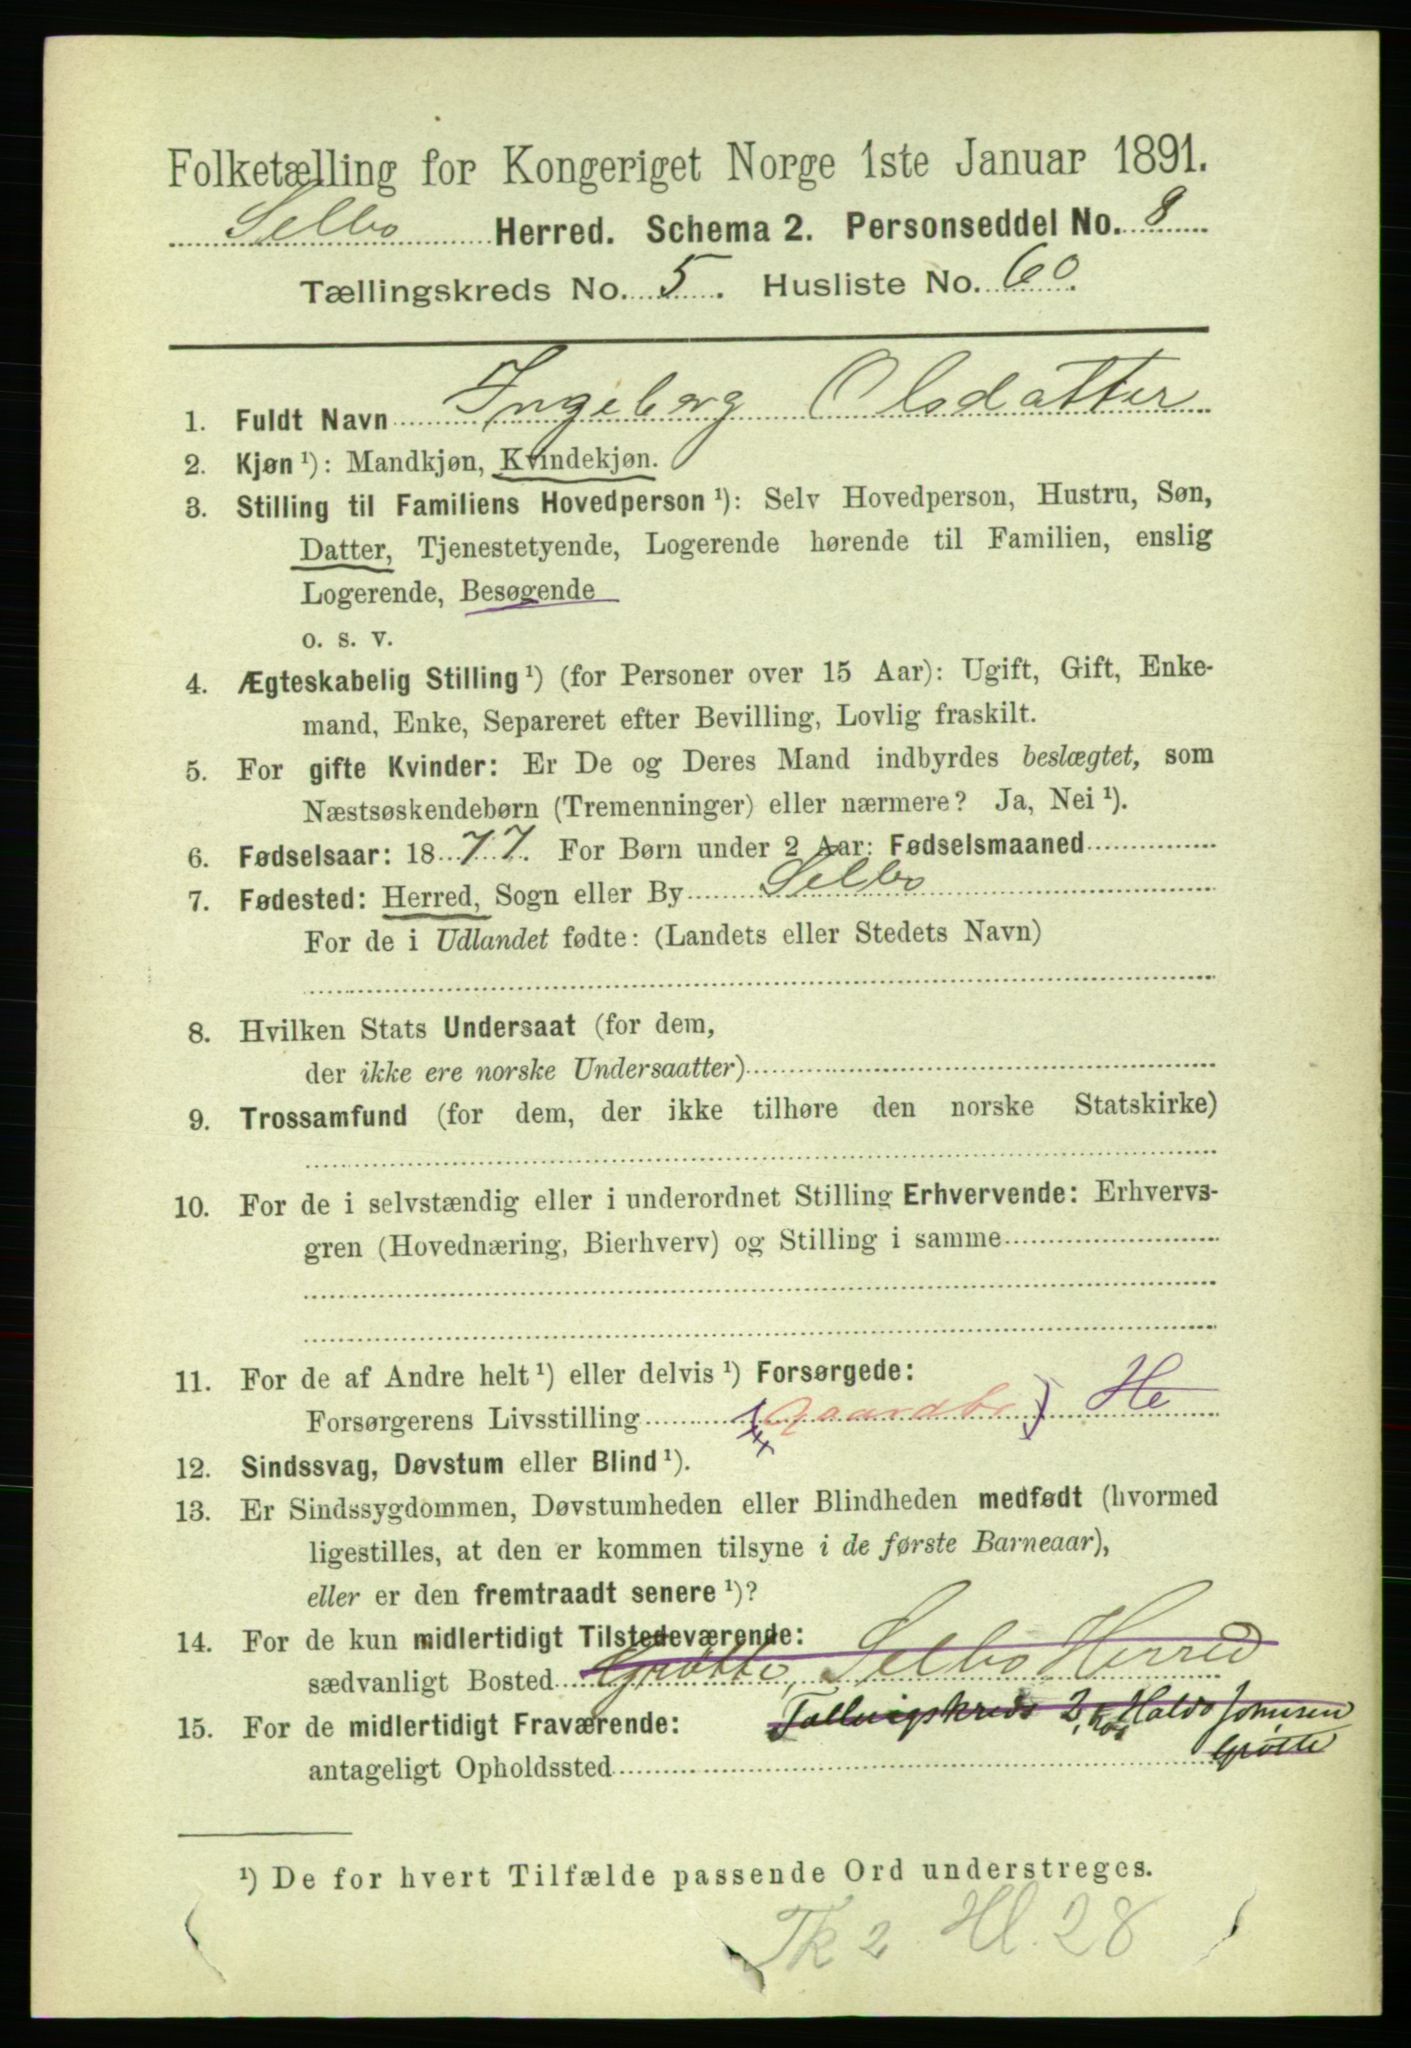 Folketælling for Kongeriget Norge 1ste Januar 1891.
Selbo Herred. Schema 2. Personseddel No. 8
Tællingskreds No. 5. Husliste No. 60.
1. Fuldt Navn Ingeborg Olsdatter
2. Kjøn ¹): Mandkjøn, Kvindekjøn.
3. Stilling til Familiens Hovedperson ¹): Selv Hovedperson, Hustru, Søn,
Datter, Tjenestetyende, Logerende hørende til Familien, enslig
Logerende, Besøgende
o. s. v.
4. Ægteskabelig Stilling ¹) (for Personer over 15 Aar): Ugift, Gift, Enke-
mand, Enke, Separeret efter Bevilling, Lovlig fraskilt.
5. For gifte Kvinder: Er De og Deres Mand indbyrdes beslægtet, som
Næstsøskendebørn (Tremenninger) eller nærmere? Ja, Nei ¹).
6. Fødselsaar: 1877. For Børn under 2 Aar: Fødselsmaaned
7. Fødested: Herred, Sogn eller By Selbo
For de i Udlandet fødte: (Landets eller Stedets Navn)
8. Hvilken Stats Undersaat (for dem,
der ikke ere norske Undersaatter)
9. Trossamfund (for dem, der ikke tilhøre den norske Statskirke)
10. For de i selvstændig eller i underordnet Stilling Erhvervende: Erhvervs-
gren (Hovednæring, Bierhverv) og Stilling i samme
11. For de af Andre helt ¹) eller delvis ¹) Forsørgede:
Forsørgerens Livsstilling (Gaardbr) He
12. Sindssvag, Døvstum eller Blind ¹).
13. Er Sindssygdommen, Døvstumheden eller Blindheden medfødt (hvormed
ligestilles, at den er kommen tilsyne i de første Barneaar),
eller er den fremtraadt senere ¹)?
14. For de kun midlertidigt Tilstedeværende:
sædvanligt Bosted Grøtte, Selbo Herred
Tællingskreds 2, hos Haldo Jonusen
15. For de midlertidigt Fraværende:
Grøtte
antageligt Opholdssted
¹) De for hvert Tilfælde passende Ord understreges.
Tk 2 Hl. 28